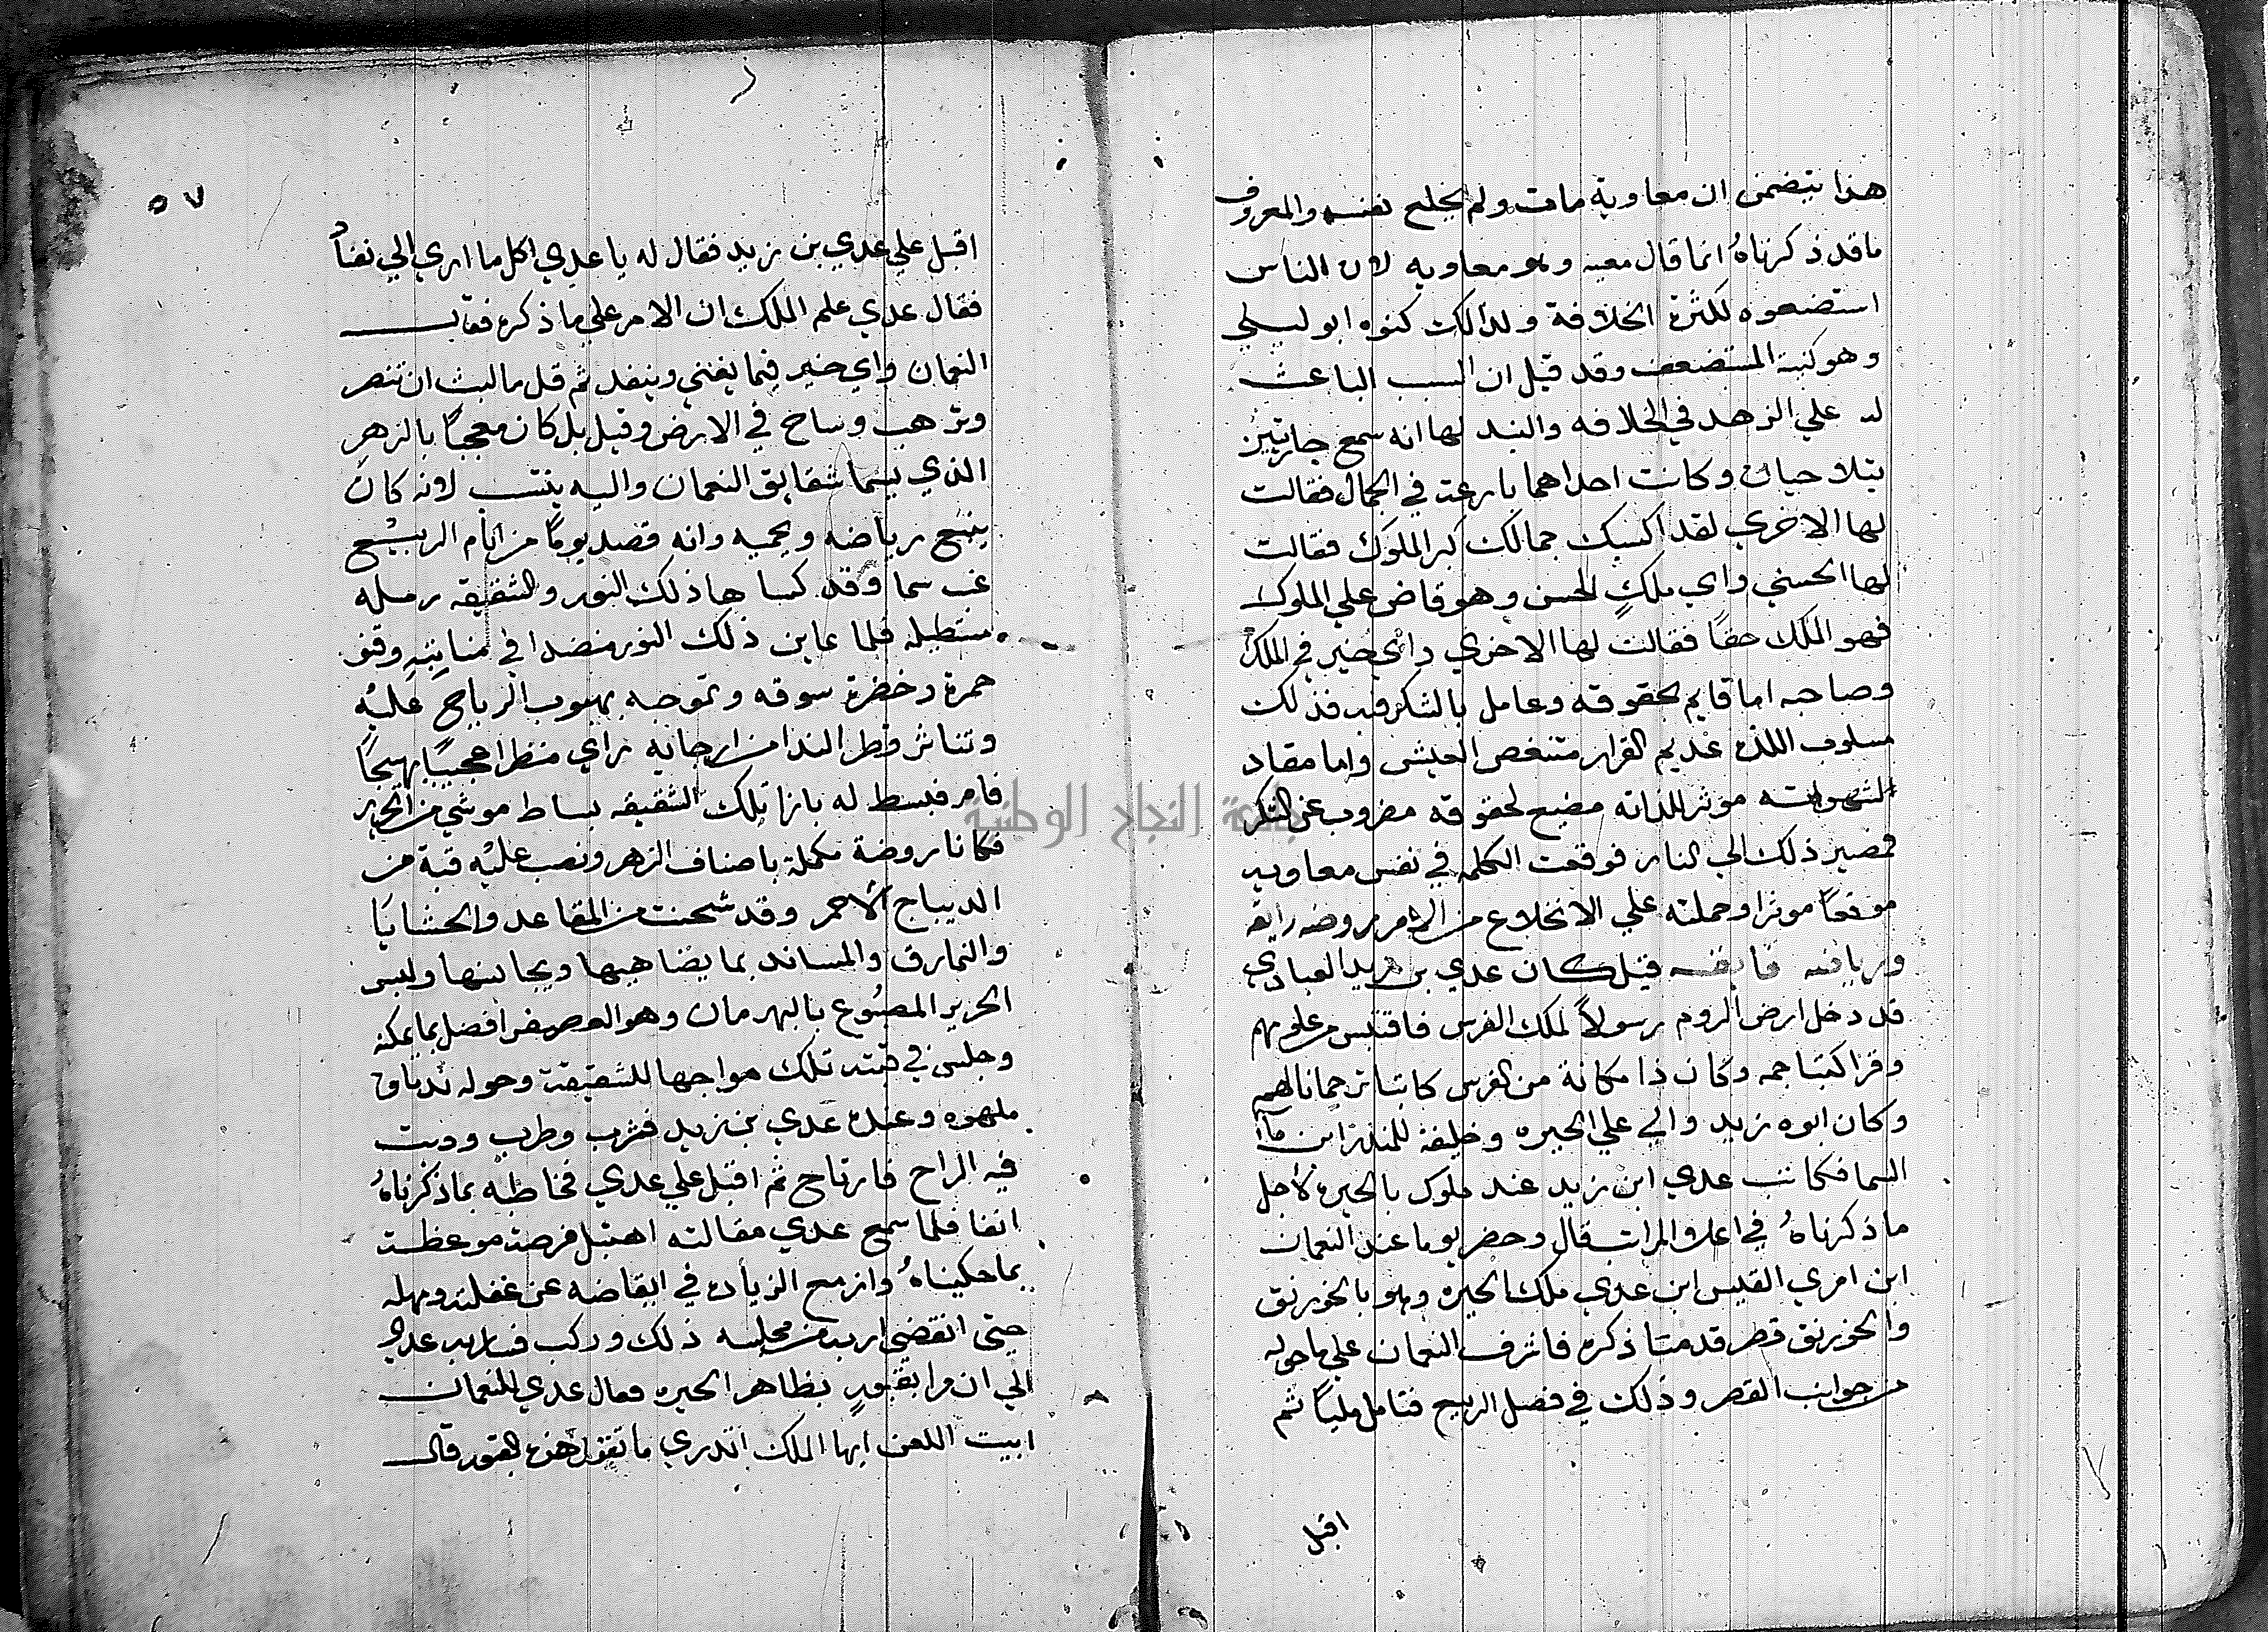 هذا يتضمن ان معاوية مات ولم يخلع نفسه والمعروف
ما قد ذكرناهُ انما قال معيه وهو معاويه لان الناس
استضعوه لكثرة الخلافة ولذالك كنوه ابو ليلي
وهو كنية المستضعف وقد قيل ان السبب الباعث
له علي الزهد في الخلافه والنبد لها انه سمع جاريتين
يتلاحيان وكانت احداهما بارعة في الجمال فقالت
لها الاخري لقد اكسبك جمالك كبر الملوك فقالت
لها الحسني واي ملكٍ الحسن وهو قاض علي الملوك
فهو الملك حقاً فقالت لها الاخري واي خير في الملك
وصاحبه اما قايم بحقوقه وعامل بالشكر فيه فذلك
مسلوب اللذه عديم القرار متنغص العيش واما منقاد
لشهواته موثر للذاته مضيع لحقوقه مضروب عن الشكر
فمصير ذلك الي النار فوقعت الكلمه في نفس معاويه
موقعاً موثرا وحملته علي الانخلاع من الامر روضه رايقه
ورياضه فايقه قيل كان عدي بن زيد العبادي
قد دخل ارض الروم رسولاً لملك الفرس فاقتبس من علومهم
وقرا كتبا جمه وكان ذا مكانة من الفرس كاتبا ترجمانا لهم
وكان ابوه زيد والي علي الحيره وخليفة للمنذر ابن مآ
السما فكانت عدي ابن زيد عند ملوك بالحيره لاجل
ما ذكرناهُ في اعلا المراتب قال وحضر يوما عند النعمان
ابن امري القيس ابن عدي ملك الحيره وهو بالخورنق
والخورنق قصر قد متا ذكره فاشرف النعمان علي ما حوله
من جوانب القصر وذلك في فصل الربيع فتامل مليًا ثم
اقبل
٥٧
اقبل علي عدي بن زيد فقال له يا عدي اكل ما اري الي نفاد
فقال عدي علم الملك ان الامر علي ما ذكره فقال
النعمان واي خير فيما يفني وينفد ثم قل ما لبث ان تنصر
وترهب وساح في الارض وقيل بل كان معجباً بالزهر
الذي يسما شقايق النعمان واليه ينسب لانه كان
يتبع رياضه ويحميه وانه قصد يومًا من ايام الربيع
غب سما وقد كسا ها ذلك النور والشقيقه رمله
مستطيله فلما عاين ذلك النور منضدا في منابته وقنو
حمرة وخضرة سوقه وتموجه بهبوب الرياح عليه
وتناثر قطر الندا من ارجايه راي منظرا عجيبًا بهيجًا
فامر فبسط له بازا تلك الشقيقه بساط موشي من الحرير
فكانا روضة مكملة باصناف الزهر ونصب عليه قبة من
الديباج الاحمر وقد شحنت من المقاعد والحشايا
والنمارق والمساند بما يضاهيها ويجانسها ولبس
الحرير المصبُوع بالبهرمان وهو العصفر افضل ما يمكنه
وجلس في قبته تلك مواجها للشقيقة وحوله ندماؤ
ملهوه وعنده عدي بن زيد فشرب وطرب ودبت
فيه الراح فارتاح ثم اقبل علي عدي فخاطبه بما ذكرناهُ
انفا فلما سمع عدي مقالته اهتبل فرصة موعظت
بما حكيناهُ وازمع الزياده في ايقاضه عن غفلته ومهله
حتى انقضي اربه من مجلسه ذلك وركب فسايره عدي
الي ان مرا بقبورٍ بظاهر الحيره فقال عدي للنعمان
ابيت اللعن ايها الملك اتدري ما تقول هذه القبور قال
جامعة النجاح الوطنية